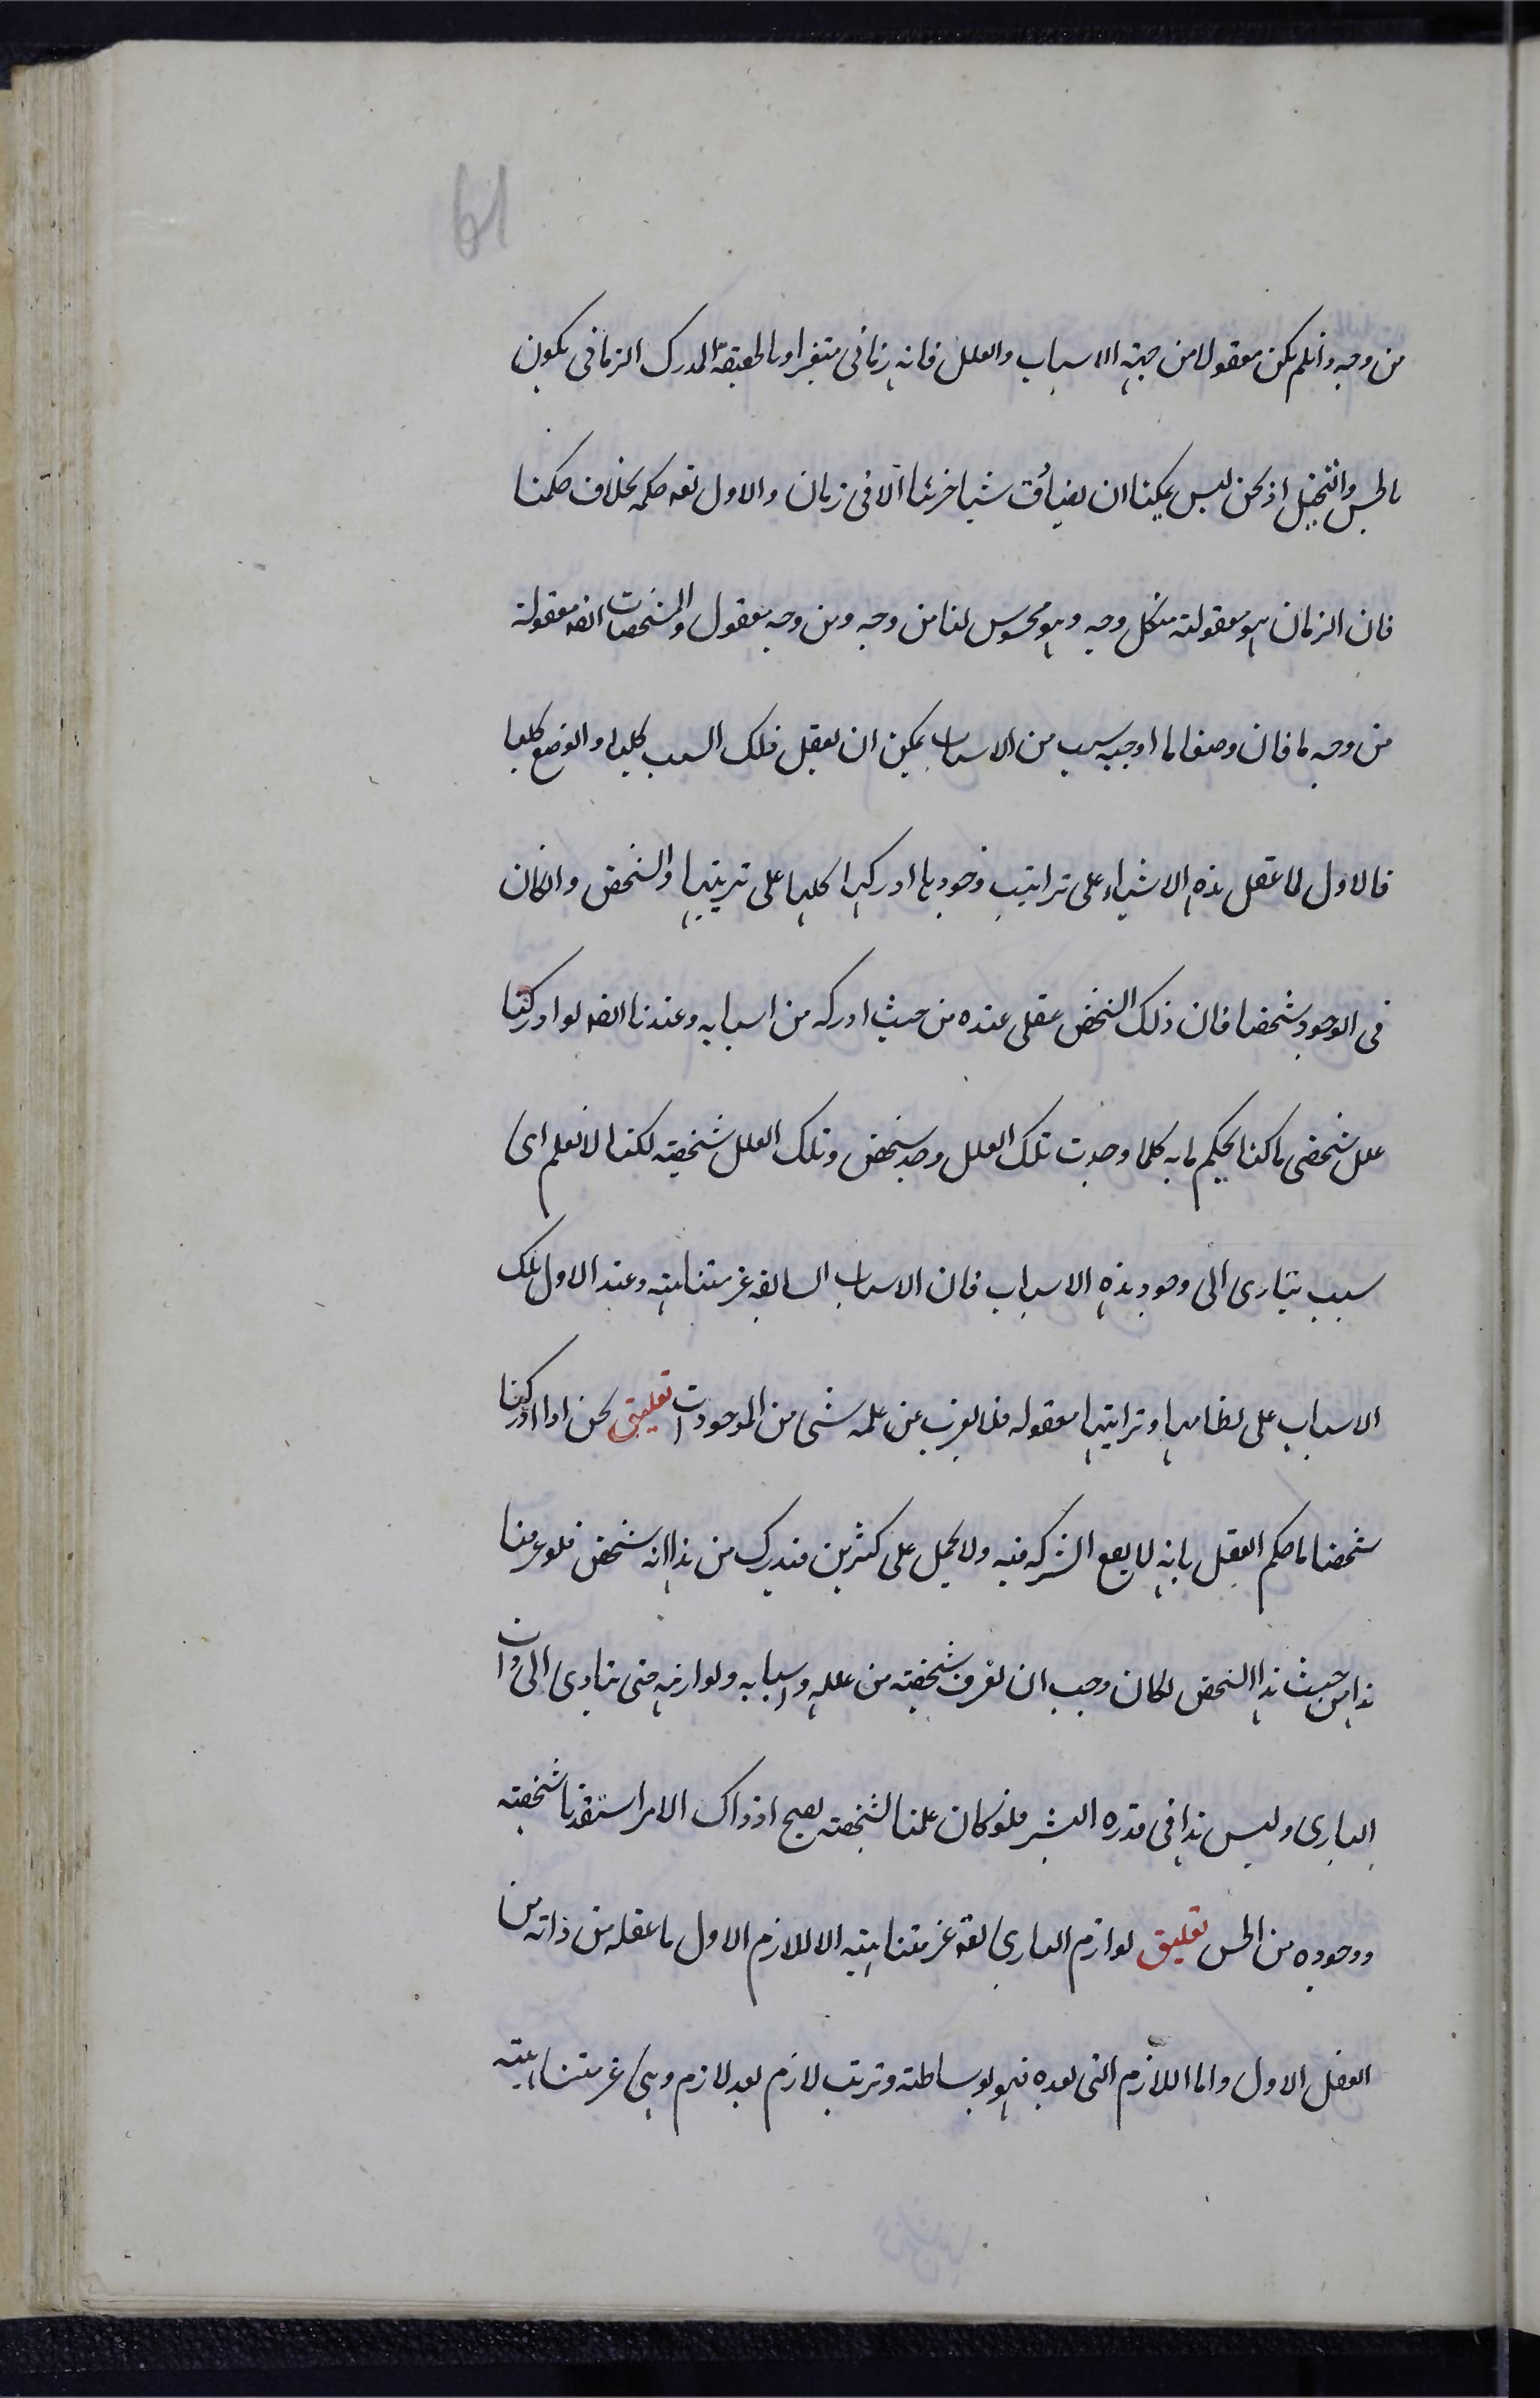 61
من وجه وانلم يكن معقولا من جهة الاسباب والعلل فانه زمانى متغير او بالحقيقة المدرك الزمانى يكون
بالحس والتخيل اذ نحن ليس يمكننا ان شيا جزئيا الا فى زمان والاول تعه حكمه بخلاف حكمنا
فان الزمان هو معقولته منكل وجه وهو محسوس لنا من وجه ومن وجه معقول والمشخصات ايضه معقولة
من وجه ما فان وصفا ما اوجبه سبب من الاسباب يمكن ان يعقل فلك السبب كليا والوضع كليا
فالاول لما عقل هذه الاشياء على تراتيب وجودها ادركها كلها على ترتيبها والشخص وانكان
فى الوجود شخصا فان ذلك الشخص عقلى عنده من حيث ادركه من اسبابه وعندنا ايضه لو ادركنا
علل شخص ما كنا نحكم بانه كلما وجدت تلك العلل وجد شخص وتلك العلل شخصيته لكنا لا نعلم اى
سبب يتادى الى وجود هذه الاسباب فان الاسباب السابقه غير متناهية وعند الاول تلك
الاسباب على نظامها وتراتيبها معقوله فلا يعزب عن علمه شى من الموجودات تعليق نحن اذا ادركنا
شخصا ما حكم العقل بانه لا يقع الشركه فيه ولا يحمل على كثيرين فندرك من هذا انه شخص فلو عرفنا
هذا من حيث هذا الشخص لكان وجب ان نعرف شخصيته من علله واسبابه ولوازمه حتى يتادى الى ذات
البارى وليس هذا فى قدره البشر فلو كان علمنا لشخصته يصح اذ ذاك الامر استفدنا شخصته
ووجوده من الحس تعليق لوازم البارى تعه غير متناهيته الا اللازم الاول ما عقله من ذاته من
العقل الاول واما اللازم التى بعده فهو بوساطته وترتب لازم بعد لازم وهى غير متناهية